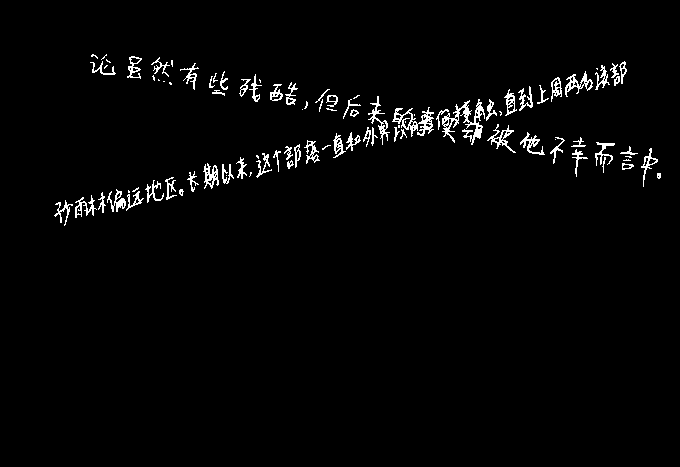 论虽然有些残酷,但后来被他不幸而言中。
孙雨林偏远地区。长期以来,这个部落一直和外界没有接触,直到上周两名该部